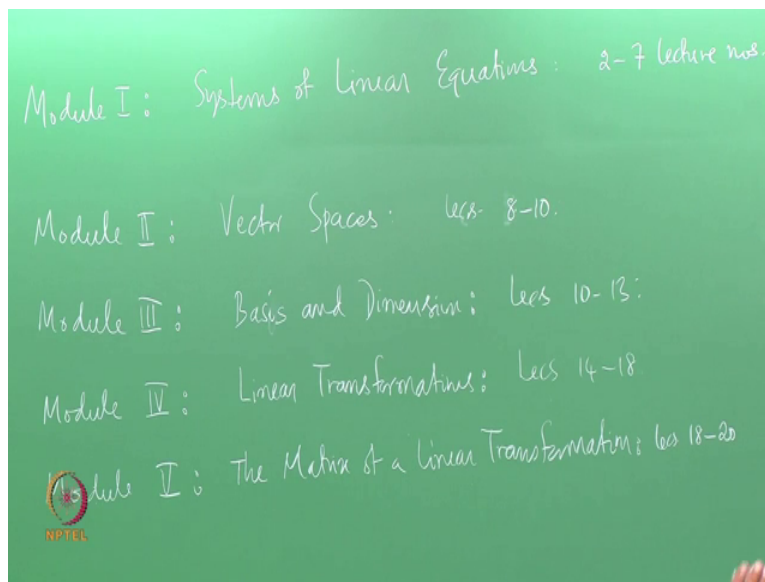 Module I : Systems of Linear Equations : 2-7 lecture nos.
Module II : Vector Spaces : Lecs 8-10.
Module III : Basis and Dimension : Lecs 10-13:
Module IV : Linear Transformations : Lecs 14-18
Module V : The Matrix of a Linear Transformation : Lecs 18-20
NPTEL